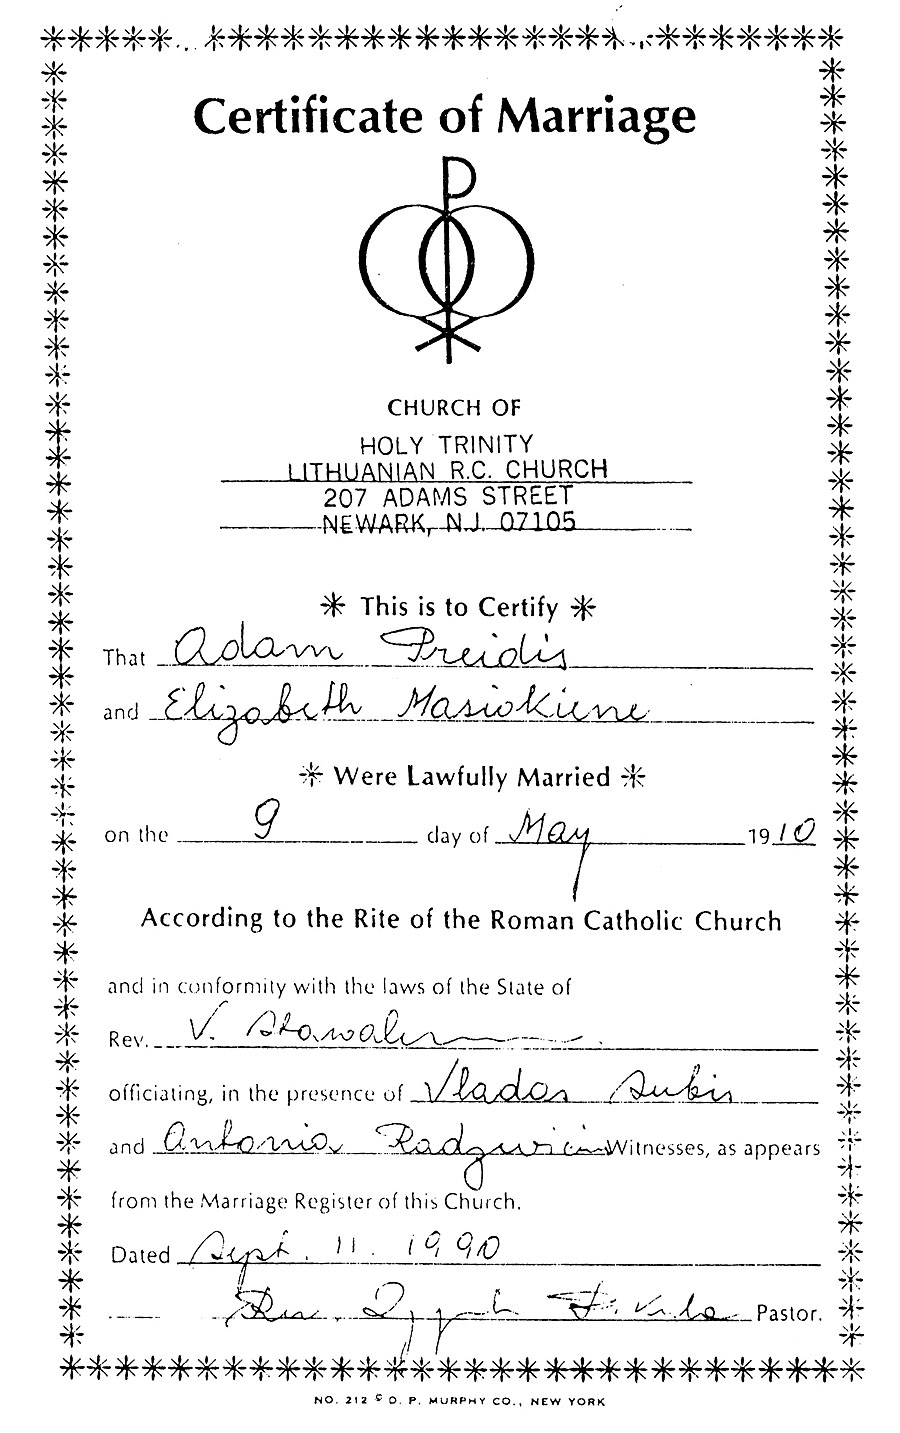 Certificate of Marriage
CHURCH OF
HOLY TRINITY
LITHUANIAN R.C. CHURCH
207 ADAMS STREET
NEWARK, N.J. 07105
This is to Certify
That Adam Preidis
and Elizabeth Masiokiene
Were Lawfully Married
on the 9 day of May 1910
According to the Rite of the Roman Catholic Church
and in conformity with the laws of the State of
Rev. V.
officiating, in the presence of Vladas Subis
and Antonia Witnesses, as appears
from the Marriage Register of this Church.
Dated Sept. 11. 1990
Rev. Pastor.
NO. 212 © D. P. MURPHY CO., NEW YORK